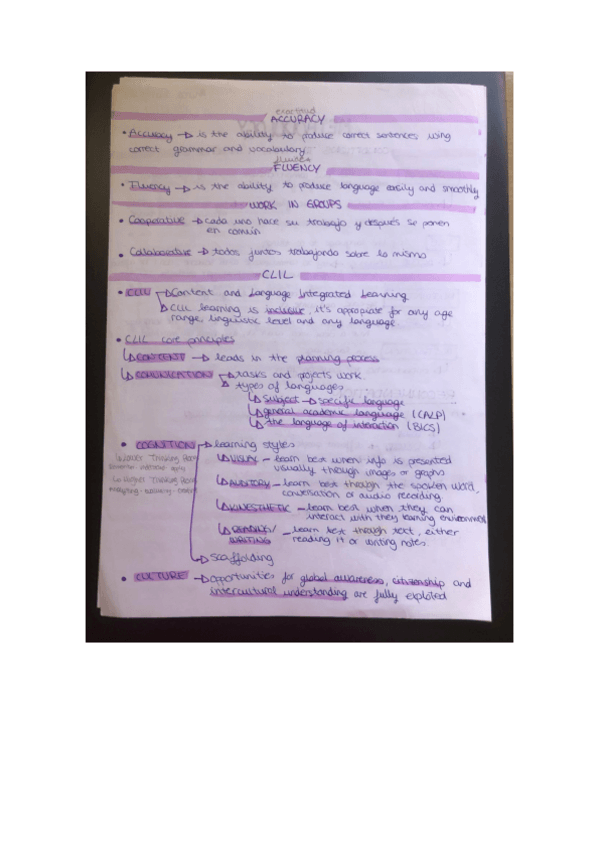 exactitud
ACCURACY
• Accuracy → is the ability to produce correct sentences using
correct grammar and vocabulary
fluidez
FLUENCY
• Fluency → is the ability to produce language easily and smoothly
WORK IN GROUPS
• Cooperative → cada uno hace su trabajo y después se ponen
en común
• Collaborative → todos juntos trabajando sobre lo mismo
CLIL
• CLIL → Content and Language Integrated Learning
→ CLIL learning is inclusive, it's appropriate for any age
range, linguistic level and any language
• CLIL core principles
↳ CONTENT → leads in the planning process
↳ COMUNICATION → tasks and projects work
→ types of languages
↳ subject → specific language
↳ general academic language (CALP)
↳ the language of interaction (BICS)
• COGNITION → learning styles
Lower Thinking
↳ VISUAL – learn best when info is presented
visually through images or graphs
Higher Thinking
↳ AUDITORY – learn best through the spoken word,
conversation or audio recording
↳ KINESTHETIC – learn best when they can
interact with they learning environment
↳ READING/ – learn best through text, either
WRITING reading it or writing notes.
→ Scaffolding
• CULTURE → opportunities for global awareness, citizenship and
intercultural understanding are fully exploted